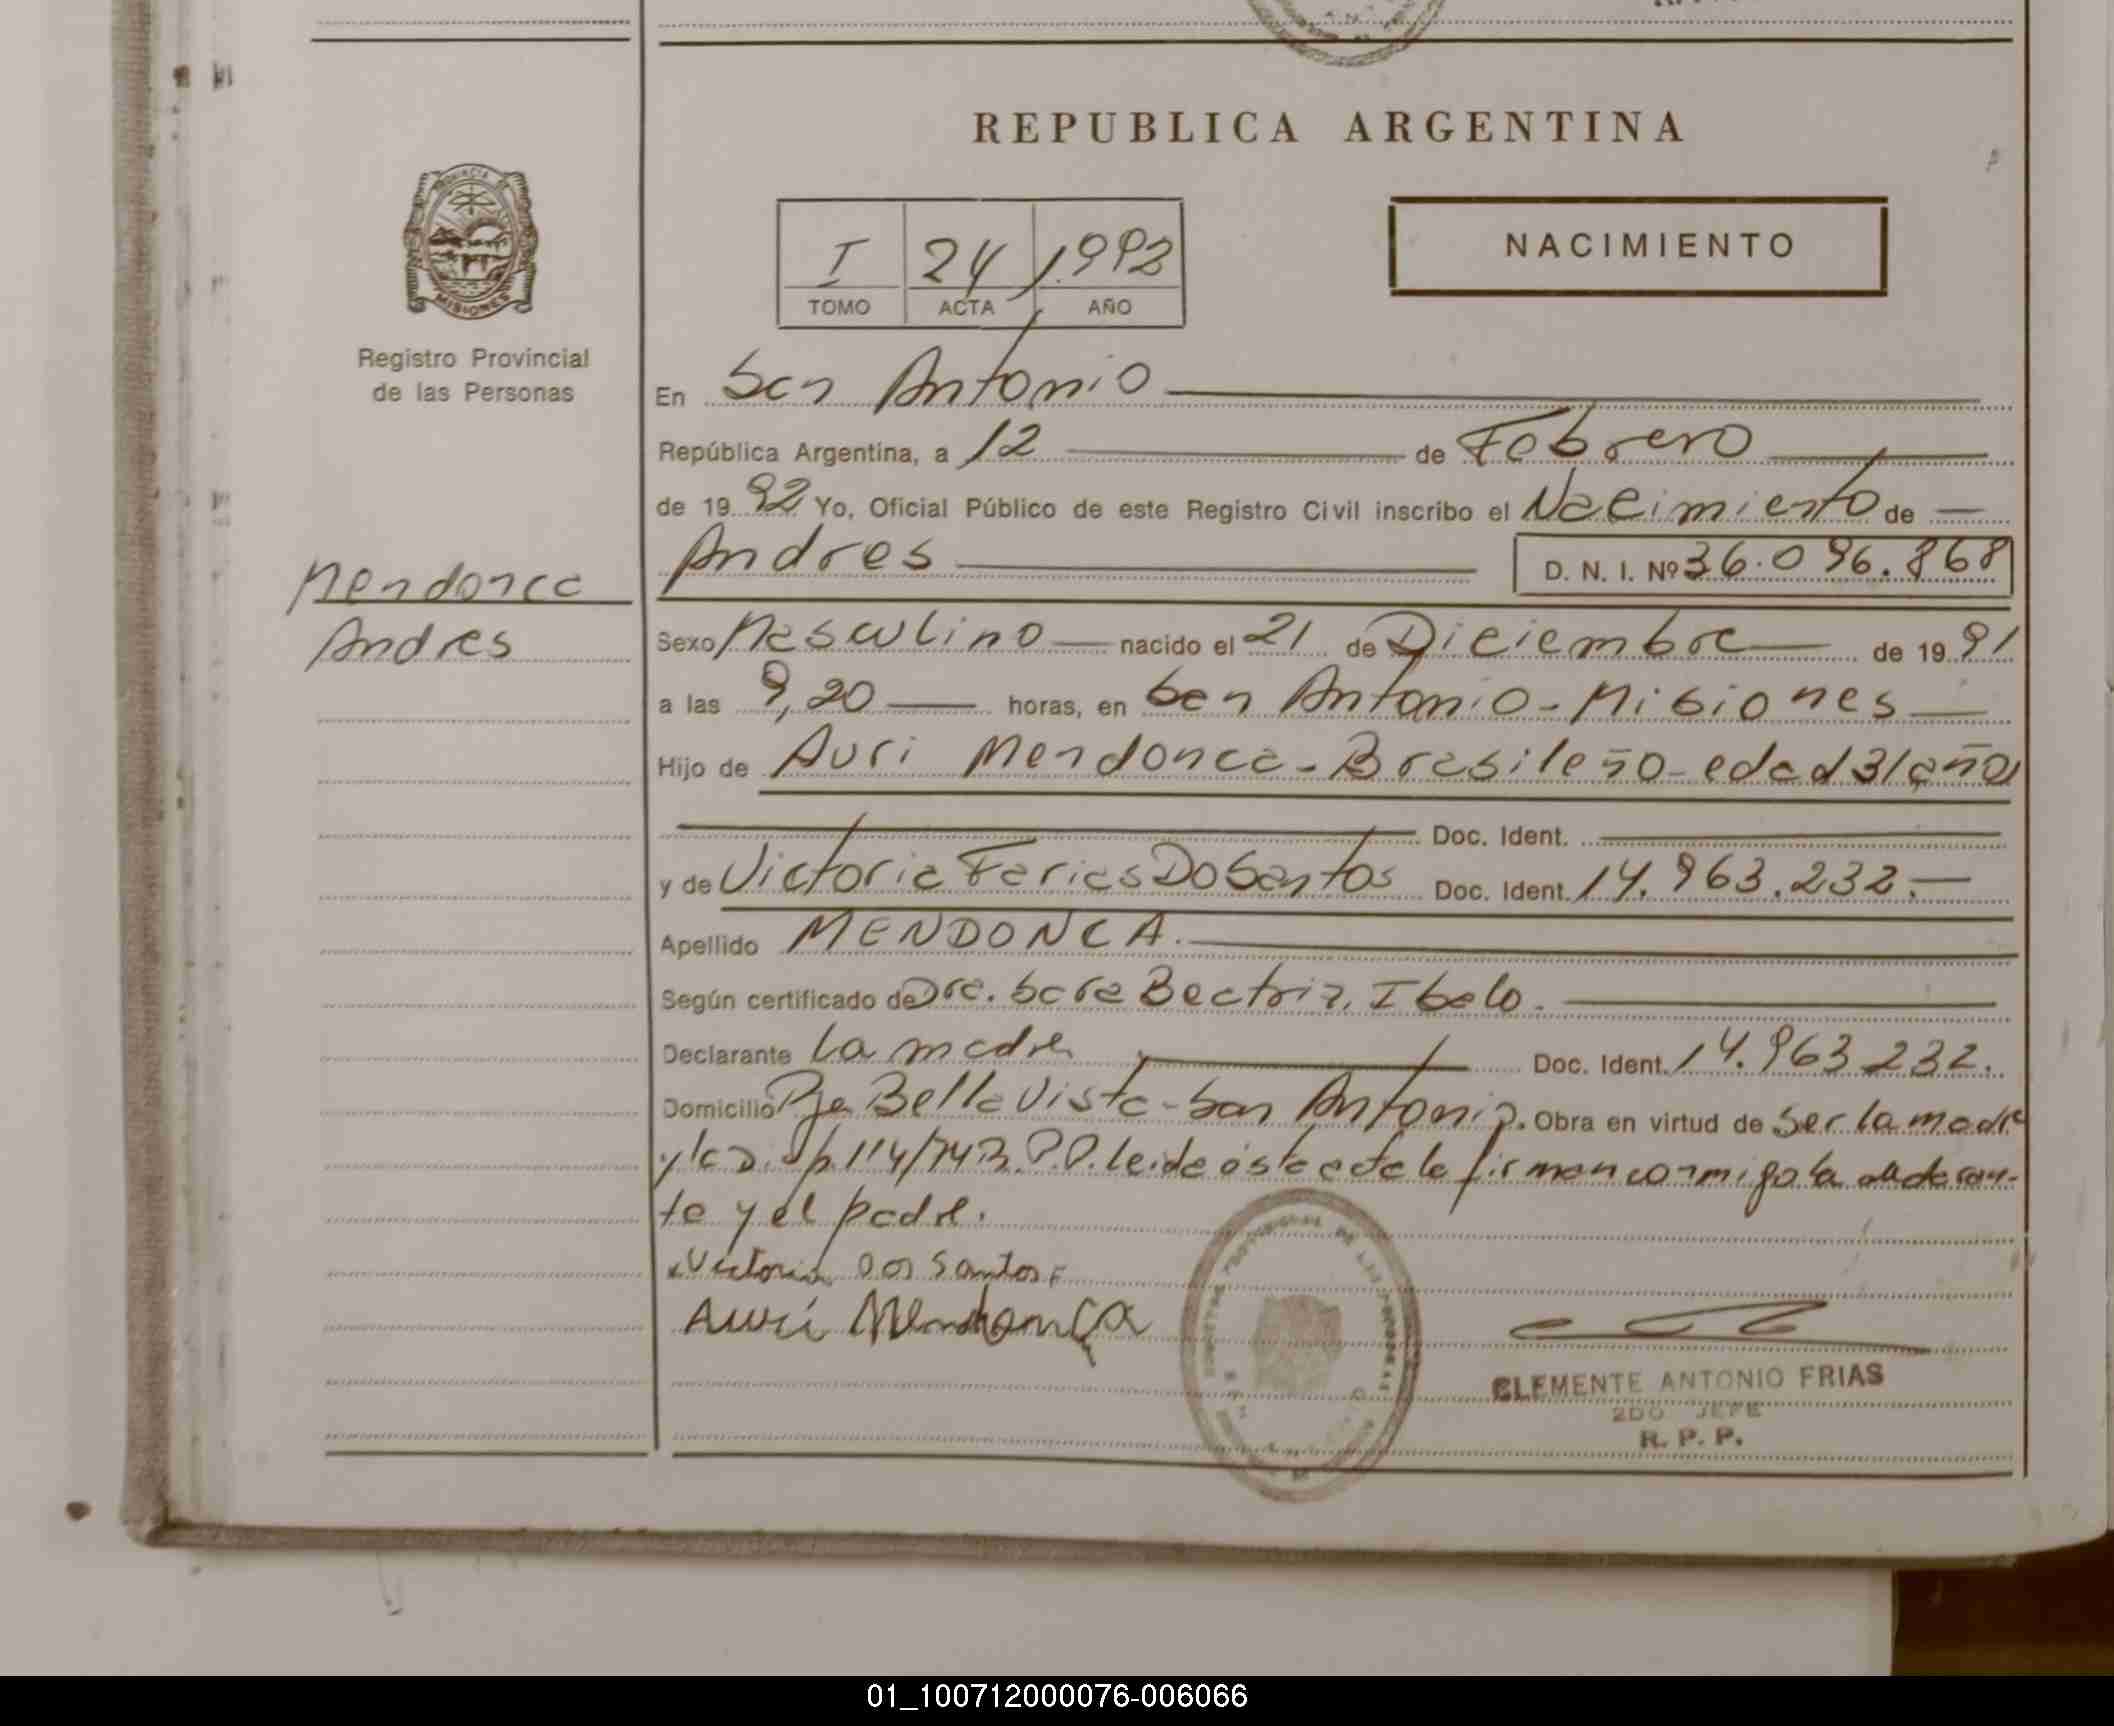 REPUBLICA ARGENTINA
MISIONES
Registro Provincial
de las Personas
NACIMIENTO
I 24 1.992
TOMO ACTA AÑO
En San Antonio
República Argentina, a 12 de Febrero
de 1992 Yo, Oficial Público de este Registro Civil inscribo el Nacimiento de
Andres D. N. I. Nº 36.096.868
Mendonca
Andres
Sexo Masculino nacido el 21 de Diciembre de 1991
a las 9,20 horas, en San Antonio - Misiones
Hijo de Auri Mendonca - Brasileño - edad 31 años
Doc. Ident.
y de Victoria Farias Do Santos Doc. Ident. 14.963.232.-
Apellido MENDONCA.
Según certificado de Dra. Sara Beatriz Ibalo.
Declarante La madre Doc. Ident. 14.963.232.
Domicilio Pje Bella Vista - San Antonio. Obra en virtud de ser la madre
y la Disp. 114/74 R.P.P. leida ésta acta la firman conmigo la declaran-
te y el padre.
Victoria Dos Santos F
Auri Mendonça
CLEMENTE ANTONIO FRIAS
2DO JEFE
R. P. P.
01_100712000076-006066